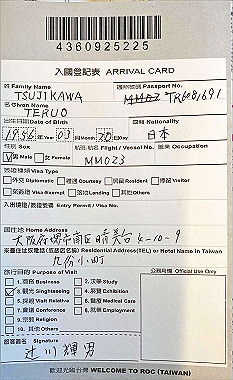 4360925225
入國登記表 ARRIVAL CARD
姓 Family Name
護照號碼 Passport No.
TSUJIKAWA
TR608,691
名 Given Name
TERUO
出生日期 Date of Birth
國籍 Nationality
1956 年Year 03 月Month 30 日Day
日本
性別 Sex
航班.船名 Flight / Vessel No.
職業 Occupation
男 Male 女 Female
MM023
簽證種類 Visa Type
外交 Diplomatic 禮遇 Courtesy 居留 Resident 停留 Visitor
免簽證 Visa-Exempt 落地 Landing 其他 Others
入出境證/簽證號碼 Entry Permit / Visa No.
居住地 Home Address
大阪府堺市南区晴美台 4-10-9
來臺住址或飯店名稱 Residential Address(TEL) or Hotel Name in Taiwan
九份小町
旅行目的 Purpose of Visit
公務用欄 Official Use Only
1. 商務 Business
2. 求學 Study
3. 觀光 Sightseeing
4. 展覽 Exhibition
5. 探親 Visit Relative
6. 醫療 Medical Care
7. 會議 Conference
8. 就業 Employment
9. 宗教 Religion
10. 其他 Others
旅客簽名 Signature
辻川輝男
歡迎光臨台灣 WELCOME TO ROC (TAIWAN)